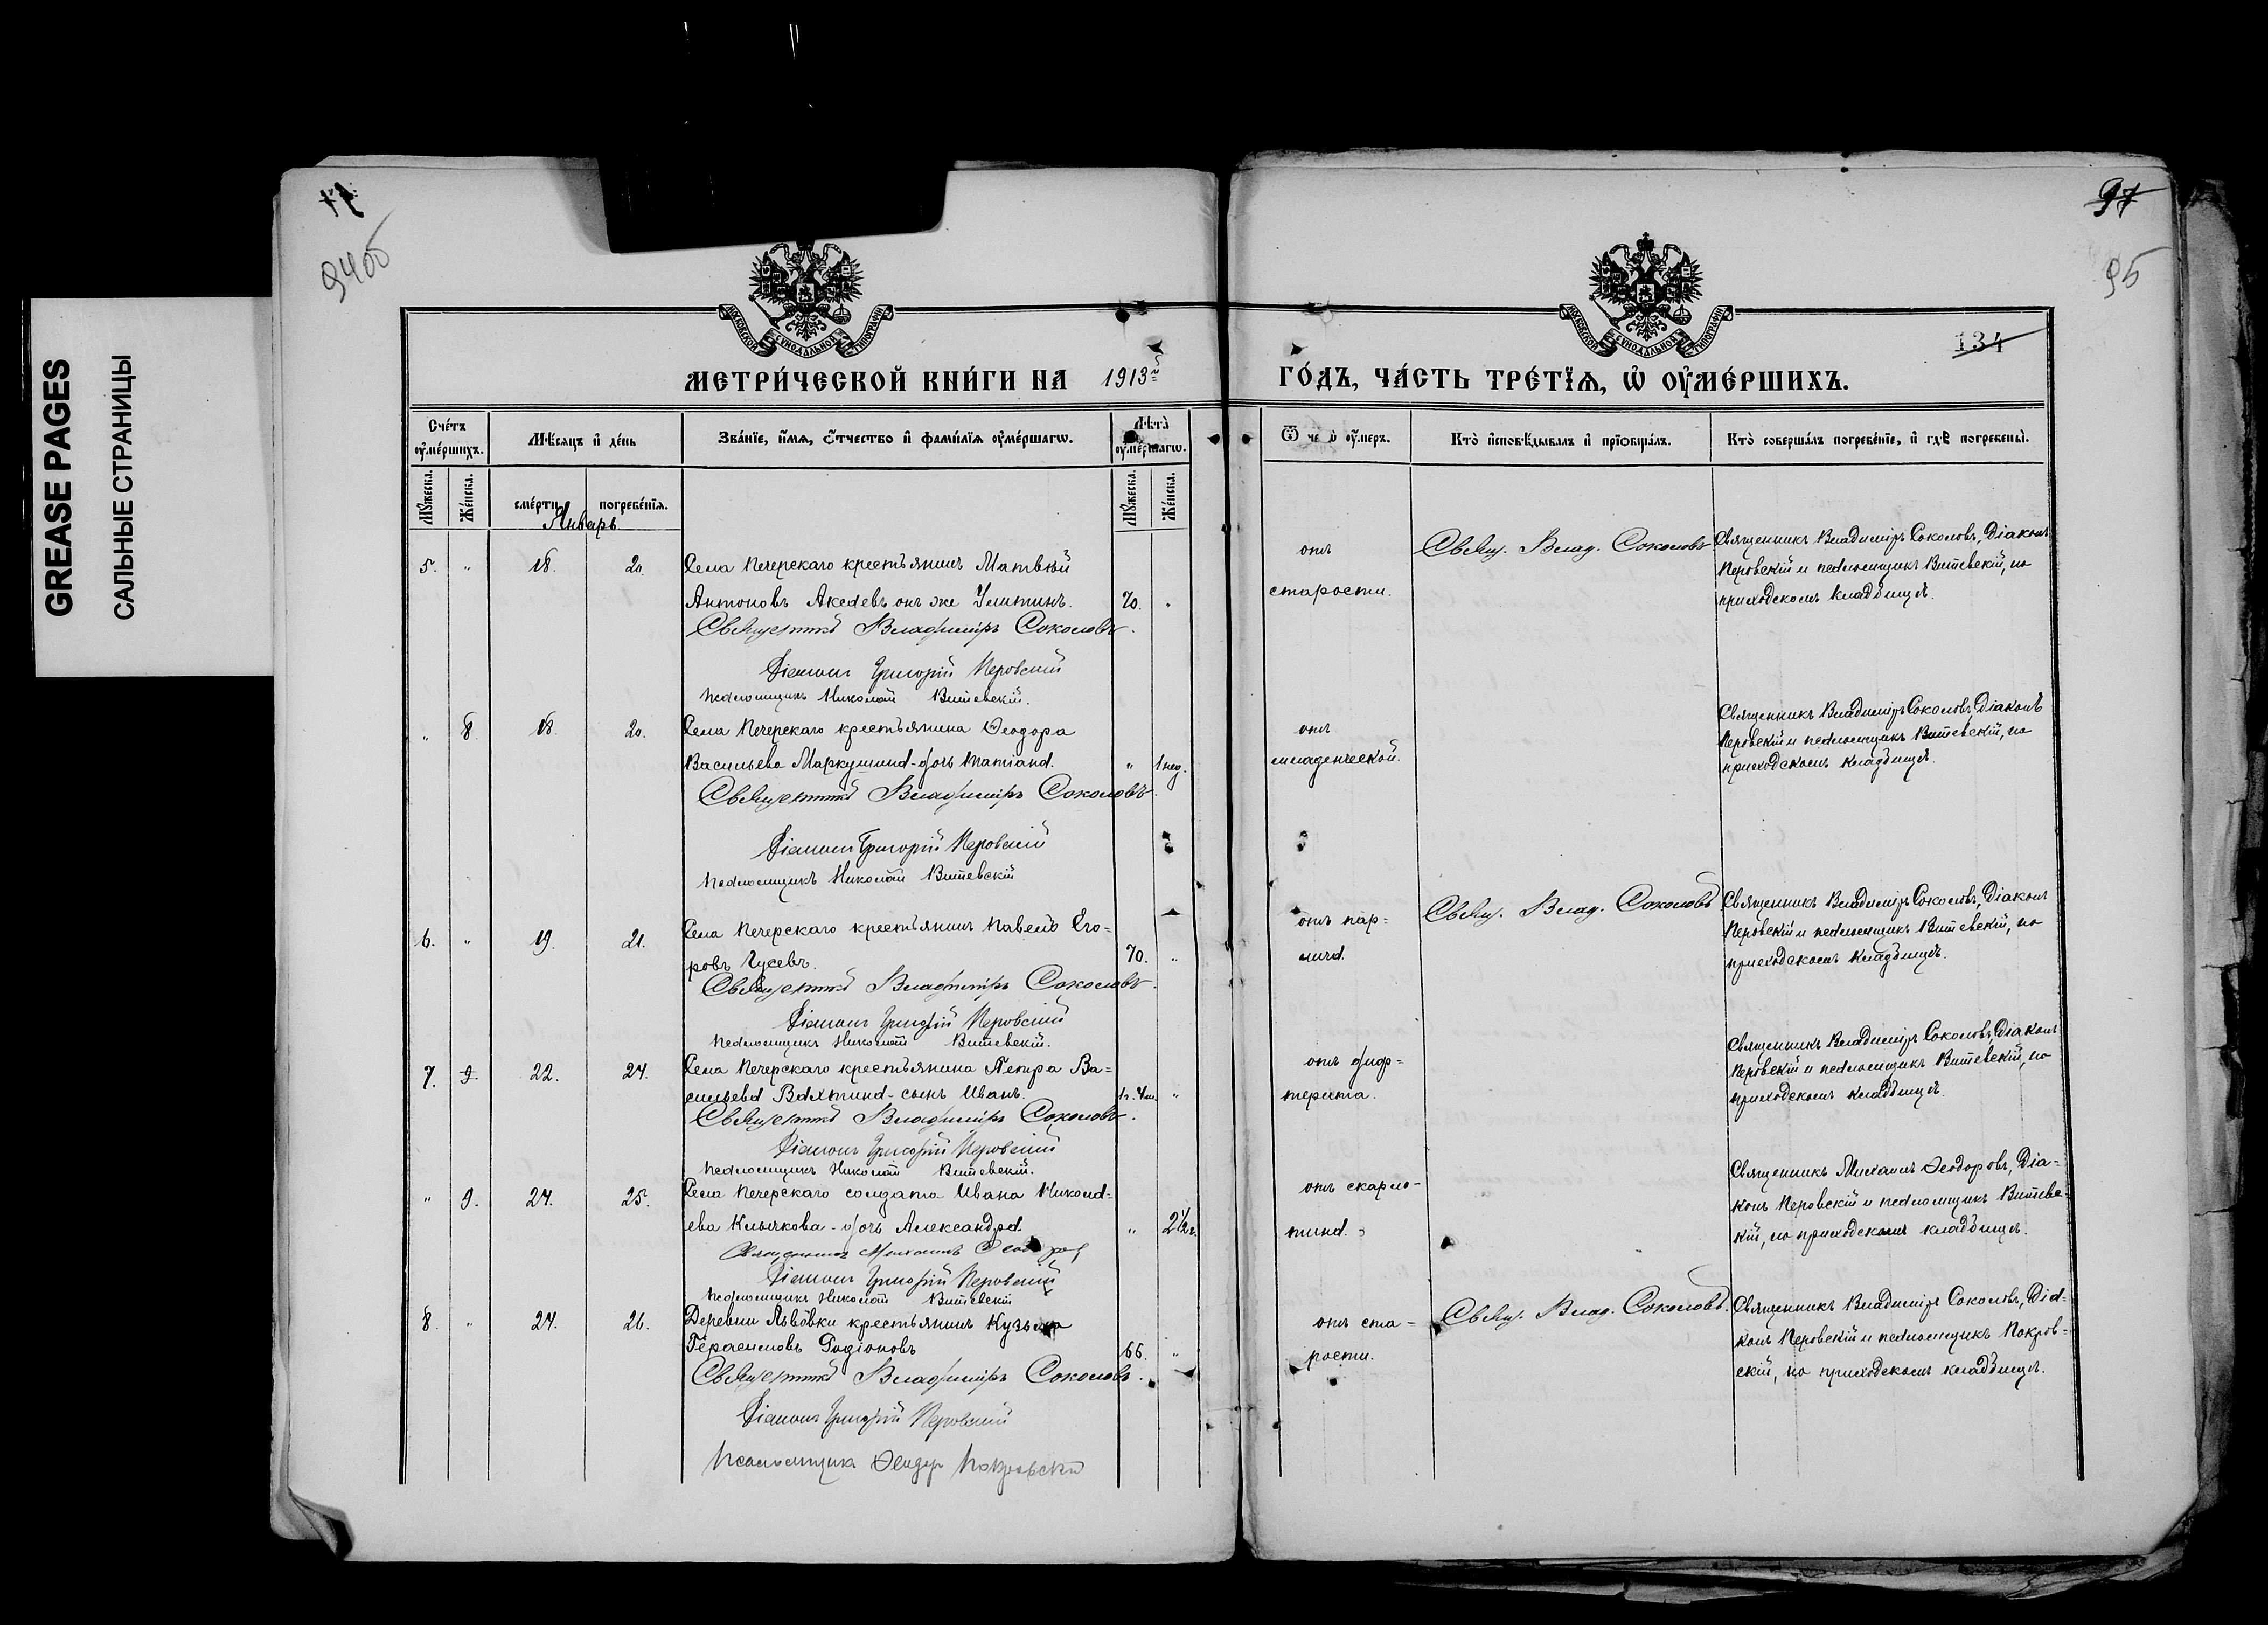 GREASE PAGES
САЛЬНЫЕ СТРАНИЦЫ
94об
97
95
134
МОСКОВСКОЙ СѴНОДАЛЬНОЙ ТИПОГРАФІИ
МОСКОВСКОЙ СѴНОДАЛЬНОЙ ТИПОГРАФІИ
МЕТРИ́ЧЕСКОЙ КНИ́ГИ НА 1913й
ГО́ДЪ, ЧА́СТЬ ТРЕ́ТЇѦ, Ѡ҆ ОУ҆МЕ́РШИХЪ.
Счéтъ оу҆ме́ршихъ.
Мѣ́сяцъ и҆ де́нь
Зва́нїе, и҆́мя, ѻ҆́тчество и҆ фами́лїя оу҆ме́ршагѡ.
Лѣта̀ оу҆ме́ршагѡ.
Ѿ чегѡ̀ оу҆́меръ.
Кто̀ и҆сповѣ́дывалъ и҆ прїѡбща́лъ.
Кто̀ соверша́лъ погребе́нїе, и҆ гдѣ̀ погребены̀.
Мꙋ́жеска.
Же́нска.
сме́рти
погребе́нїя.
Мꙋ́жеска.
Же́нска.
Январь.
5. " 18. 20. Села Печерскаго крестьянинъ Матвѣй
Антоновъ Акаевъ онъ же Улитинъ. 70. "
Священникъ Владиміръ Соколовъ.
Діаконъ Григорій Перовскій
Псаломщикъ Николай Витевскій.
отъ
старости.
Свящ. Влад. Соколовъ
Священникъ Владиміръ Соколовъ, Діаконъ
Перовскій и псаломщикъ Витевскій, на
приходскомъ кладбищѣ.
" 8. 18. 20. Села Печерскаго крестьянина Ѳеодора
Васильева Маркушина - дочь Татіана. " 1 нед.
Священникъ Владиміръ Соколовъ.
Діаконъ Григорій Перовскій
Псаломщикъ Николай Витевскій
отъ
младенческой.
Священникъ Владиміръ Соколовъ, Діаконъ
Перовскій и псаломщикъ Витевскій, на
приходскомъ кладбищѣ.
6. " 19. 21. Села Печерскаго крестьянинъ Павелъ Его=
ровъ Гусевъ. 70. "
Священникъ Владиміръ Соколовъ.
Діаконъ Григорій Перовскій
Псаломщикъ Николай Витевскій.
отъ пар=
лича.
Свящ. Влад. Соколовъ
Священникъ Владиміръ Соколовъ, Діаконъ
Перовскій и псаломщикъ Витевскій, на
приходскомъ кладбищѣ.
7. 9. 22. 24. Села Печерскаго крестьянина Петра Ва=
сильева Вахтина - сынъ Иванъ. 1г. 4м. "
Священникъ Владиміръ Соколовъ.
Діаконъ Григорій Перовскій
Псаломщикъ Николай Витевскій.
отъ диф=
терита.
Священникъ Владиміръ Соколовъ, Діаконъ
Перовскій и псаломщикъ Витевскій, на
приходскомъ кладбищѣ.
" 9. 24. 25. Села Печерскаго солдата Ивана Никола=
ева Клычкова - дочь Александра. " 2½г.
Священникъ Михаилъ Ѳеодоровъ
Діаконъ Григорій Перовскій
Псаломщикъ Николай Витевскій
отъ скарла-
тина.
Священникъ Михаилъ Ѳеодоровъ, Діа=
конъ Перовскій и псаломщикъ Витевс=
кій, на приходскомъ кладбищѣ.
8. " 24. 26. Деревни Львовки крестьянинъ Кузьма
Герасимовъ Родіоновъ 66. "
Священникъ Владиміръ Соколовъ.
Діаконъ Григорій Перовскій
Псаломщикъ Ѳеодоръ Покровскій
отъ ста-
рости.
Свящ. Влад. Соколовъ.
Священникъ Владиміръ Соколовъ, Діа=
конъ Перовскій и псаломщикъ Покров=
скій, на приходскомъ кладбищѣ.